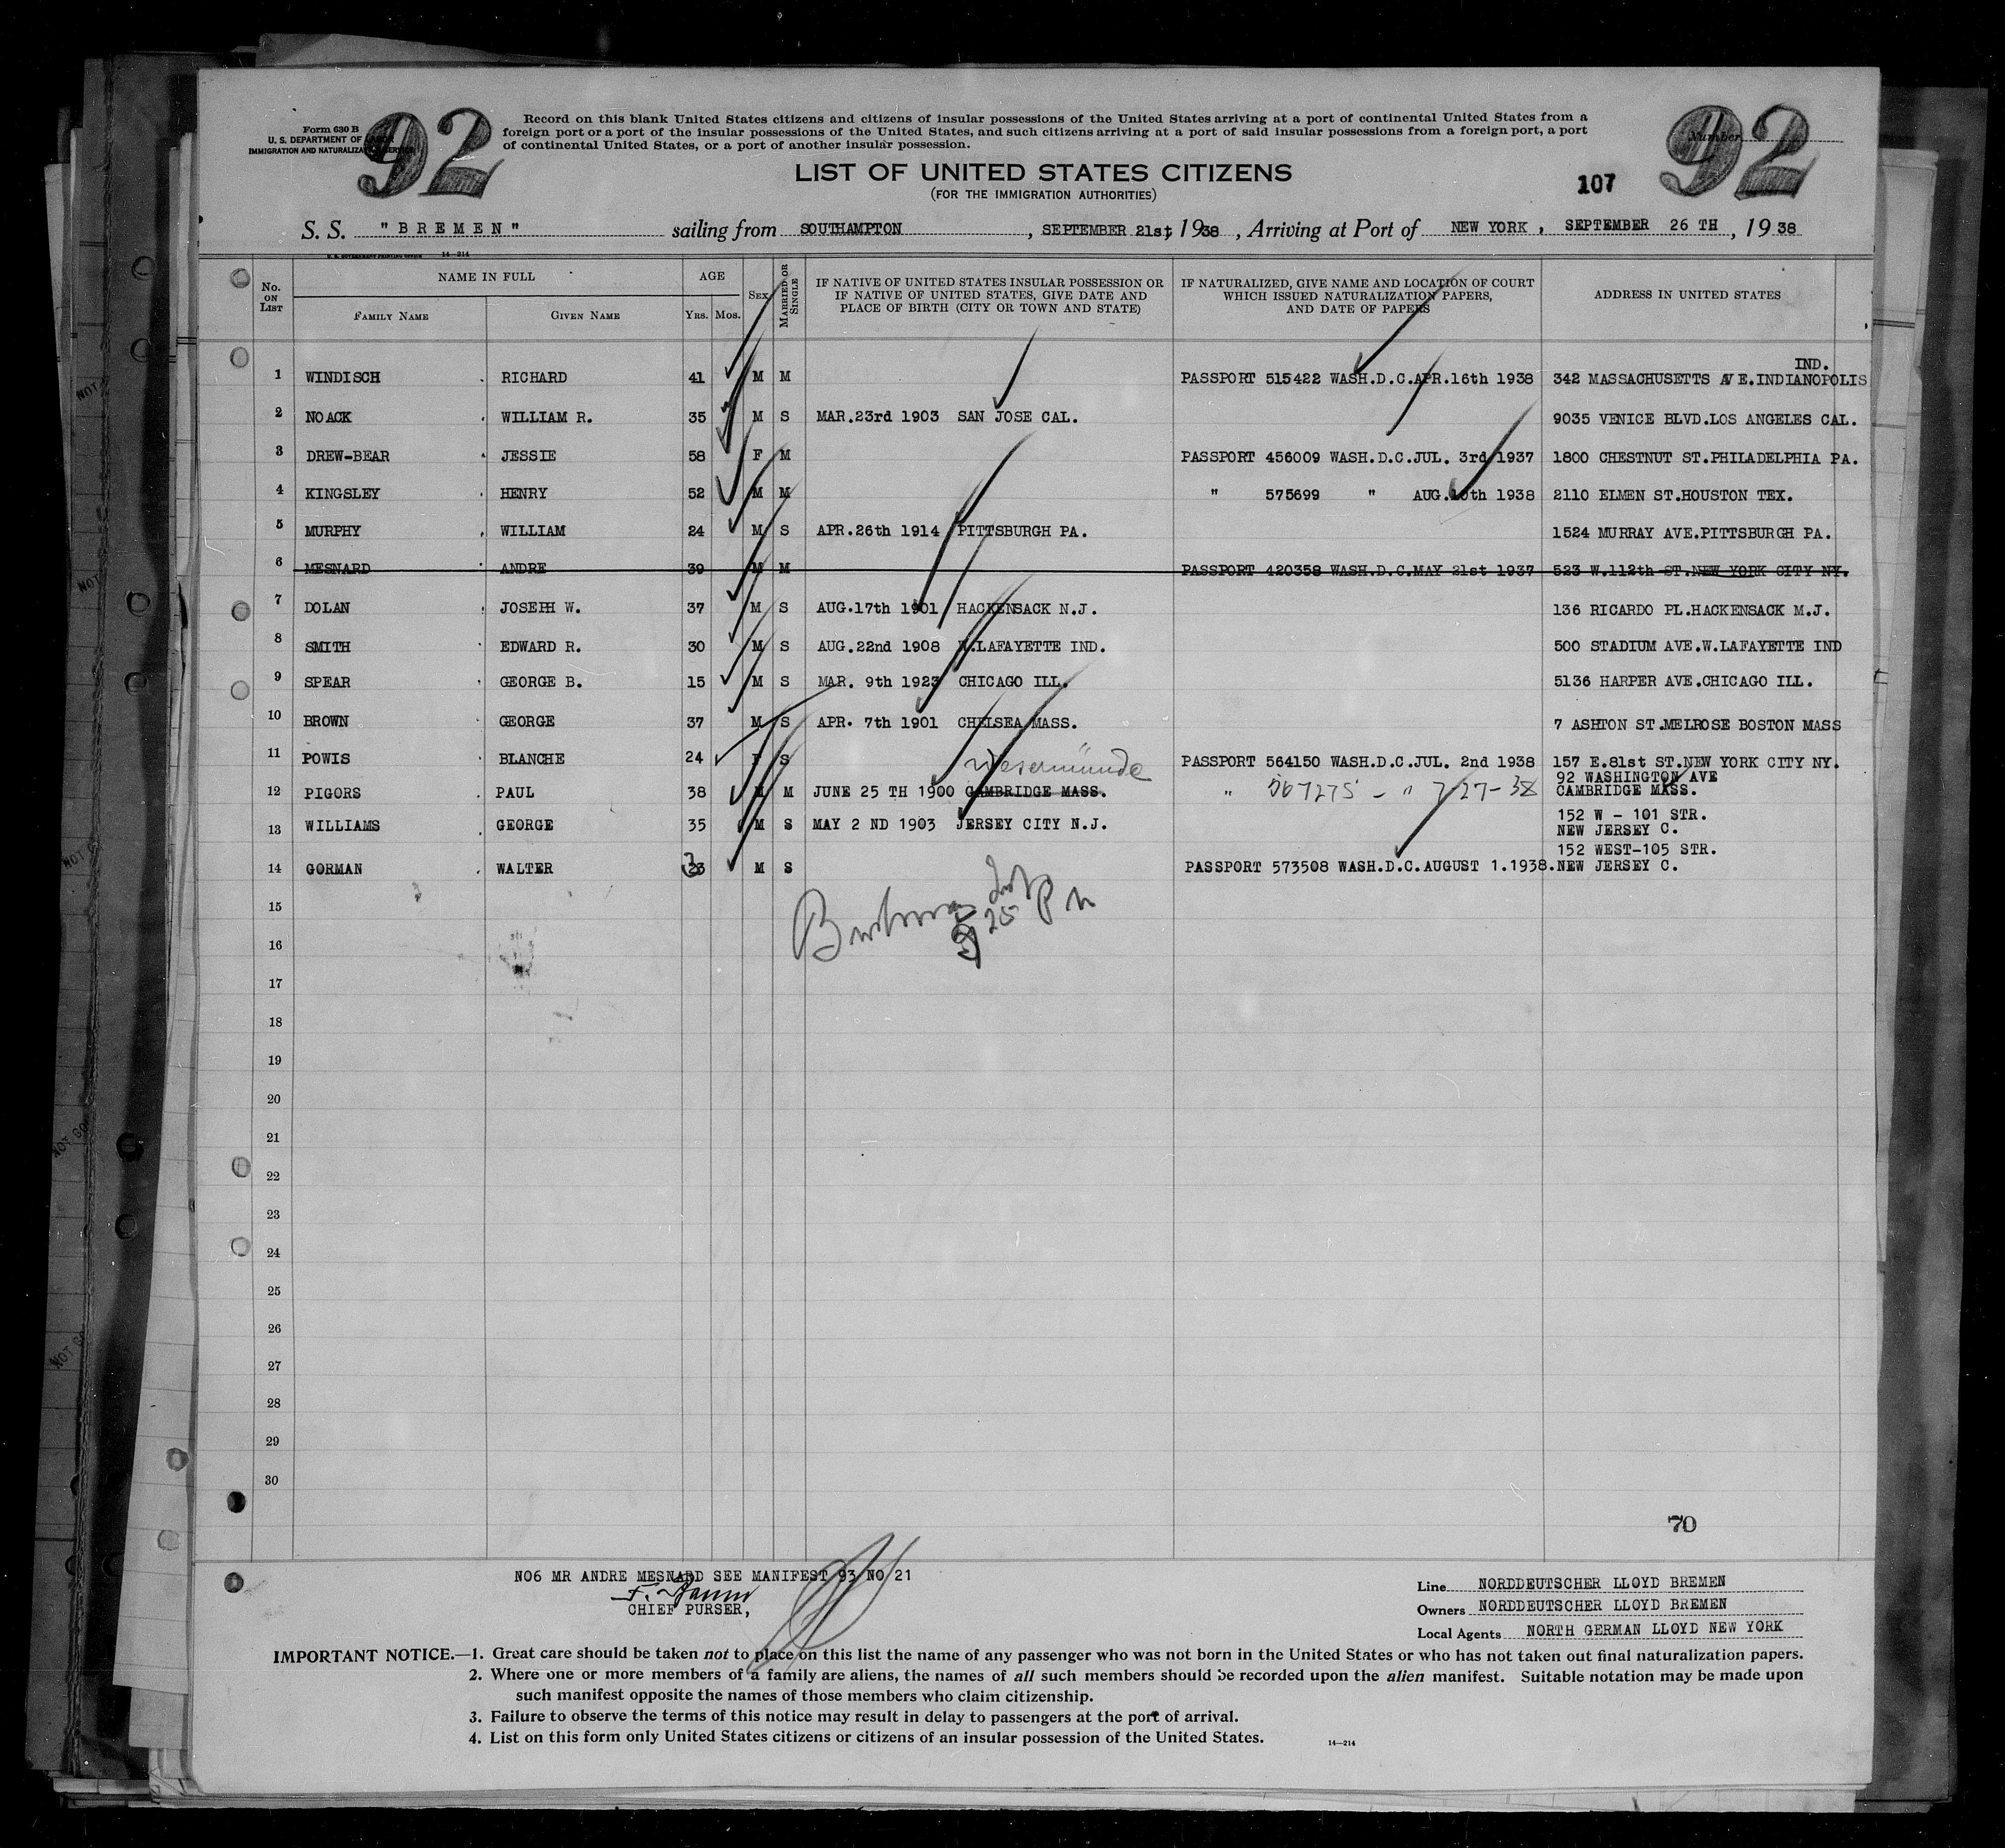 92
92
Form 630 B
U. S. DEPARTMENT OF LABOR
IMMIGRATION AND NATURALIZATION SERVICE
Record on this blank United States citizens and citizens of insular possessions of the United States arriving at a port of continental United States from a
foreign port or a port of the insular possessions of the United States, and such citizens arriving at a port of said insular possessions from a foreign port, a port
of continental United States, or a port of another insular possession.
Number
LIST OF UNITED STATES CITIZENS
(FOR THE IMMIGRATION AUTHORITIES)
107
S. S. "BREMEN" sailing from SOUTHAMPTON, SEPTEMBER 21st, 1938, Arriving at Port of NEW YORK, SEPTEMBER 26 TH, 1938
U. S. GOVERNMENT PRINTING OFFICE 14-214
No. ON LIST
NAME IN FULL
FAMILY NAME GIVEN NAME
AGE
YRS. MOS.
SEX
MARRIED OR SINGLE
IF NATIVE OF UNITED STATES INSULAR POSSESSION OR
IF NATIVE OF UNITED STATES, GIVE DATE AND
PLACE OF BIRTH (CITY OR TOWN AND STATE)
IF NATURALIZED, GIVE NAME AND LOCATION OF COURT
WHICH ISSUED NATURALIZATION PAPERS,
AND DATE OF PAPERS
ADDRESS IN UNITED STATES
IND.
1 WINDISCH RICHARD 41 M M PASSPORT 515422 WASH.D.C.APR.16th 1938 342 MASSACHUSETTS AVE.INDIANOPOLIS
2 NOACK WILLIAM R. 35 M S MAR.23rd 1903 SAN JOSE CAL. 9035 VENICE BLVD.LOS ANGELES CAL.
3 DREW-BEAR JESSIE 58 F M PASSPORT 456009 WASH.D.C.JUL. 3rd 1937 1800 CHESTNUT ST.PHILADELPHIA PA.
4 KINGSLEY HENRY 52 M M " 575699 " AUG.10th 1938 2110 ELMEN ST.HOUSTON TEX.
5 MURPHY WILLIAM 24 M S APR.26th 1914 PITTSBURGH PA. 1524 MURRAY AVE.PITTSBURGH PA.
6 MESNARD ANDRE 39 M M PASSPORT 420358 WASH.D.C.MAY 21st 1937 523 W.112th ST.NEW YORK CITY NY.
7 DOLAN JOSEPH W. 37 M S AUG.17th 1901 HACKENSACK N.J. 136 RICARDO PL.HACKENSACK M.J.
8 SMITH EDWARD R. 30 M S AUG.22nd 1908 W.LAFAYETTE IND. 500 STADIUM AVE.W.LAFAYETTE IND
9 SPEAR GEORGE B. 15 M S MAR. 9th 1923 CHICAGO ILL. 5136 HARPER AVE.CHICAGO ILL.
10 BROWN GEORGE 37 M S APR. 7th 1901 CHELSEA MASS. 7 ASHTON ST.MELROSE BOSTON MASS
11 POWIS BLANCHE 24 F S PASSPORT 564150 WASH.D.C.JUL. 2nd 1938 157 E.81st ST.NEW YORK CITY NY.
Wesermünde
92 WASHINGTON AVE
12 PIGORS PAUL 38 M M JUNE 25 TH 1900 CAMBRIDGE MASS. " 567275 - " 7-27-38 CAMBRIDGE MASS.
152 W - 101 STR.
13 WILLIAMS GEORGE 35 M S MAY 2 ND 1903 JERSEY CITY N.J. NEW JERSEY C.
152 WEST-105 STR.
14 GORMAN WALTER 23 M S PASSPORT 573508 WASH.D.C.AUGUST 1.1938. NEW JERSEY C.
15
16
17
18
19
20
21
22
23
24
25
26
27
28
29
30
70
NO6 MR ANDRE MESNARD SEE MANIFEST 93 NO 21
CHIEF PURSER,
Line NORDDEUTSCHER LLOYD BREMEN
Owners NORDDEUTSCHER LLOYD BREMEN
Local Agents NORTH GERMAN LLOYD NEW YORK
IMPORTANT NOTICE.—1. Great care should be taken not to place on this list the name of any passenger who was not born in the United States or who has not taken out final naturalization papers.
2. Where one or more members of a family are aliens, the names of all such members should be recorded upon the alien manifest. Suitable notation may be made upon
such manifest opposite the names of those members who claim citizenship.
3. Failure to observe the terms of this notice may result in delay to passengers at the port of arrival.
4. List on this form only United States citizens or citizens of an insular possession of the United States.
14—214